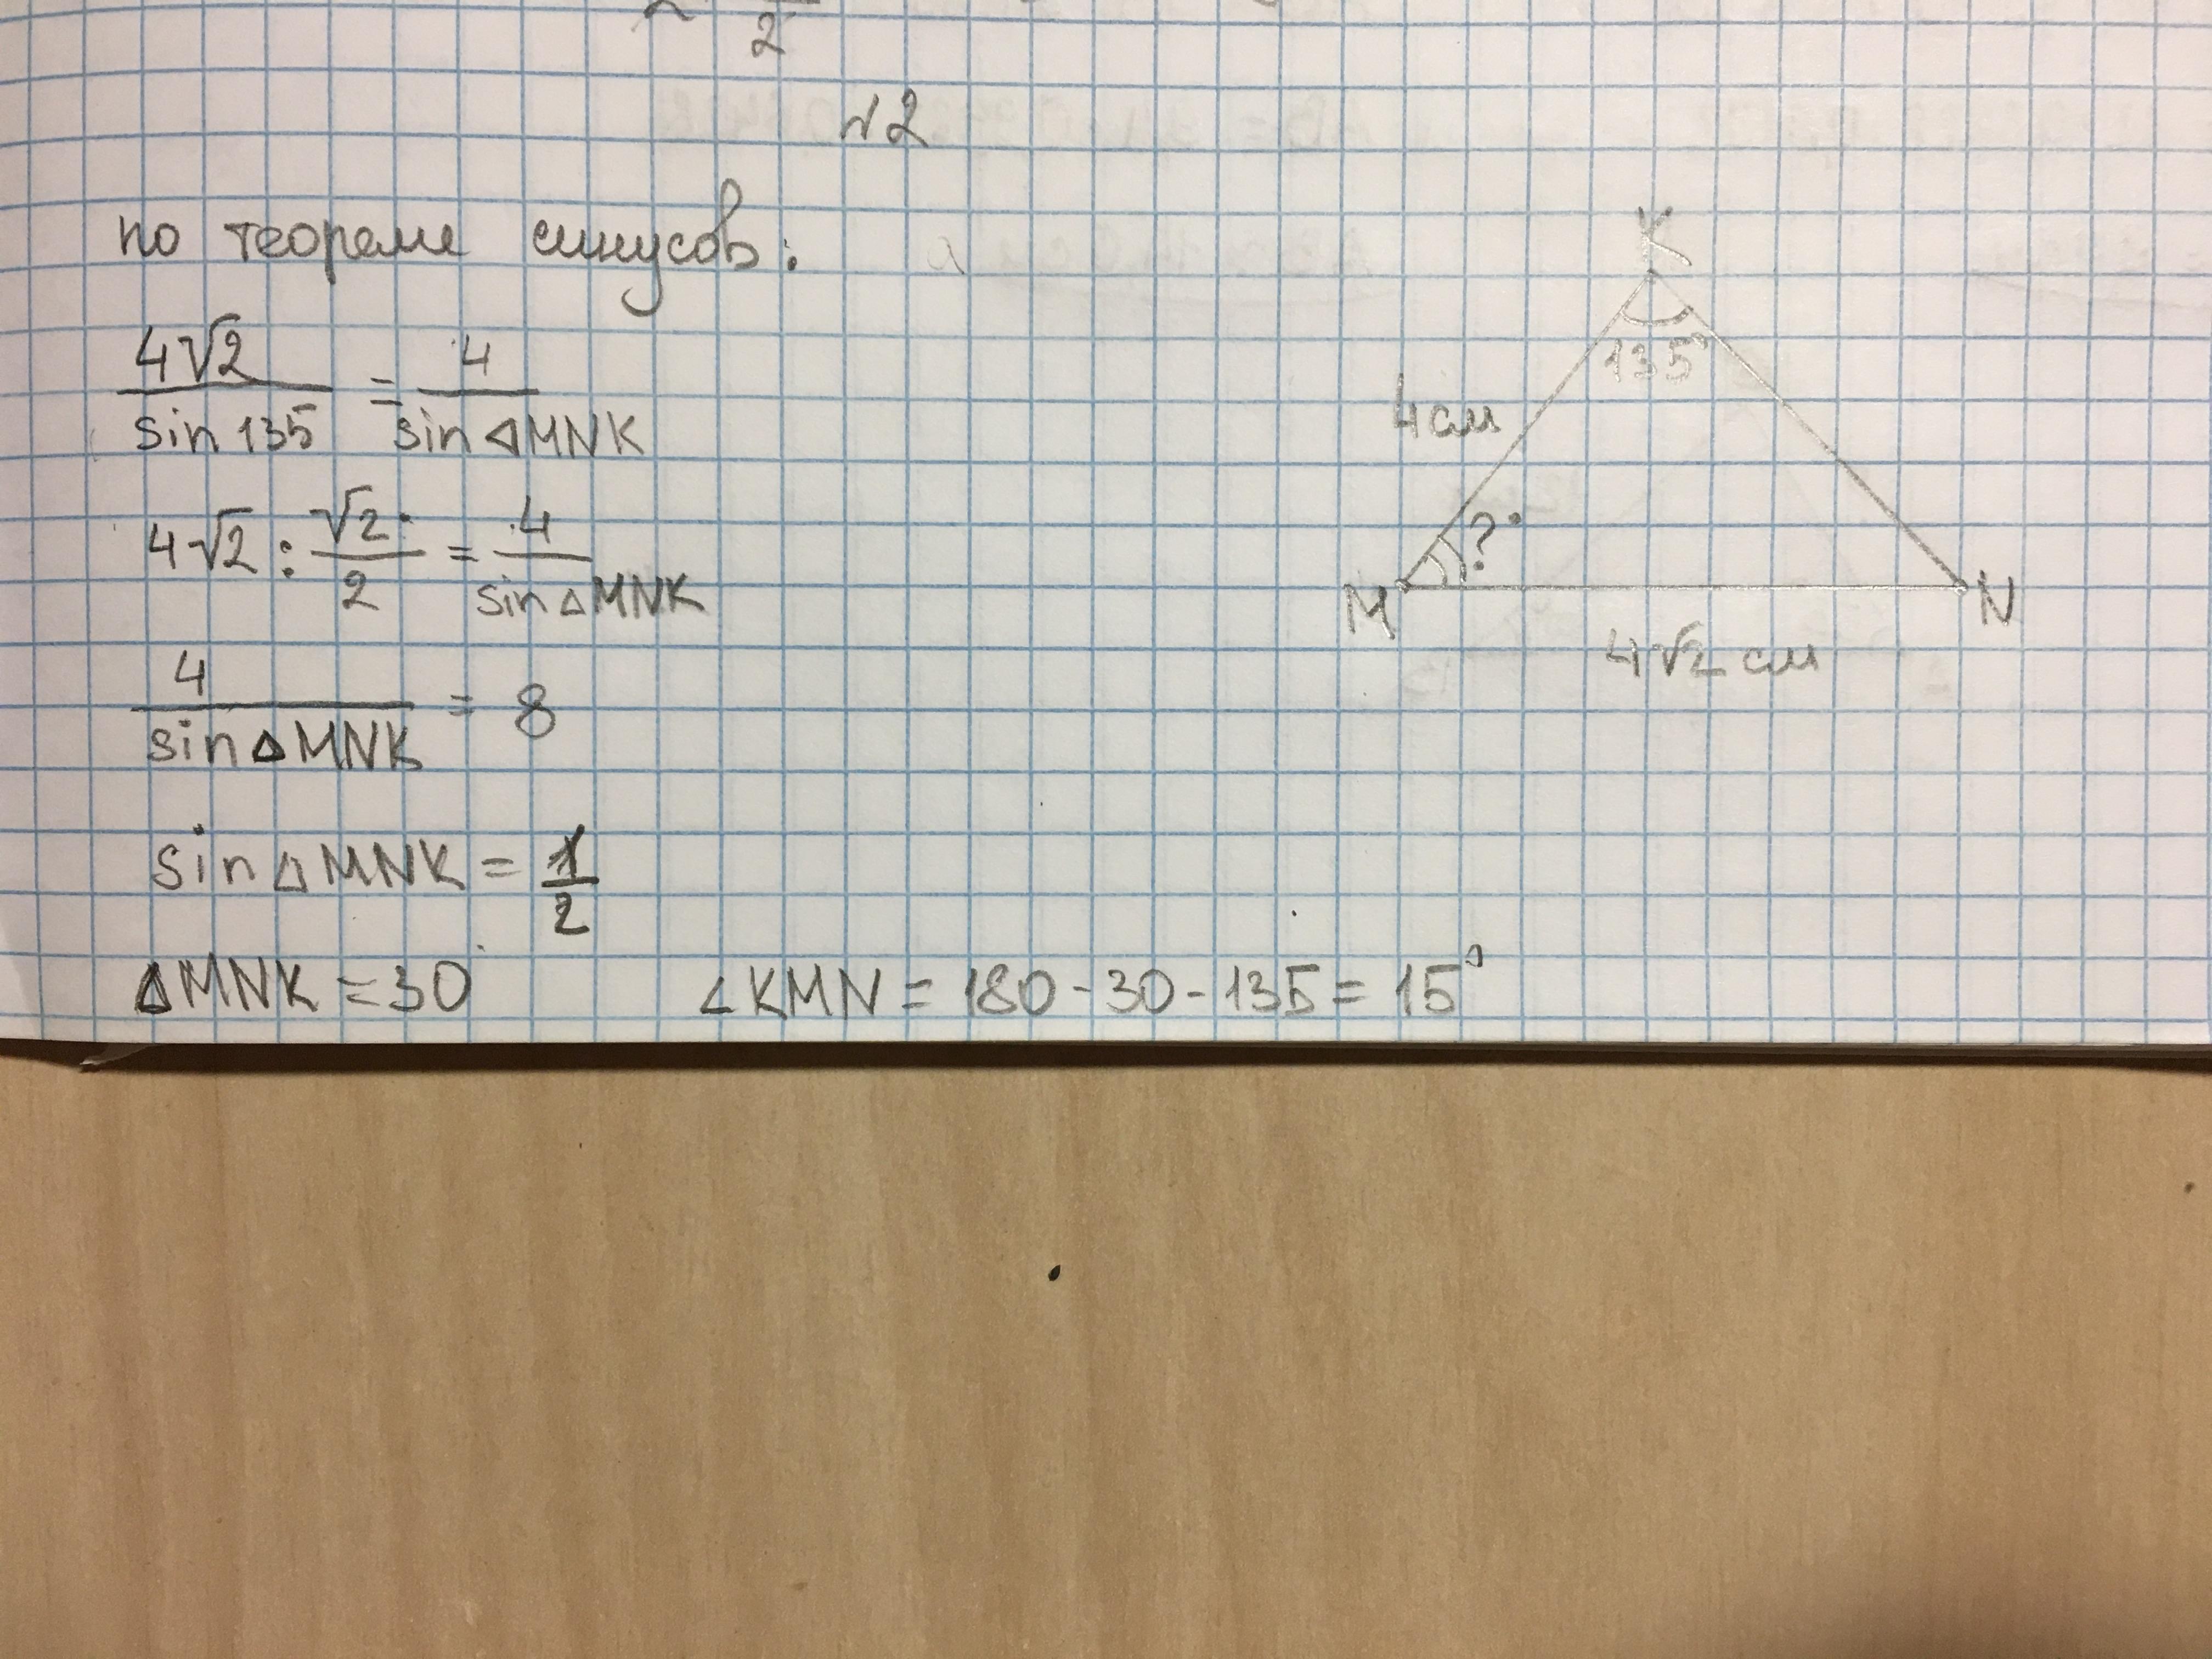 2
√2
по теореме синусов:
4√2 / sin 135 = 4 / sin △MNK
4√2 : √2 / 2 = 4 / sin △MNK
4 / sin △MNK = 8
sin △MNK = 1/2
△MNK = 30 ∠KMN = 180 - 30 - 135 = 15°
K
135°
4 см
?
M
N
4√2 см